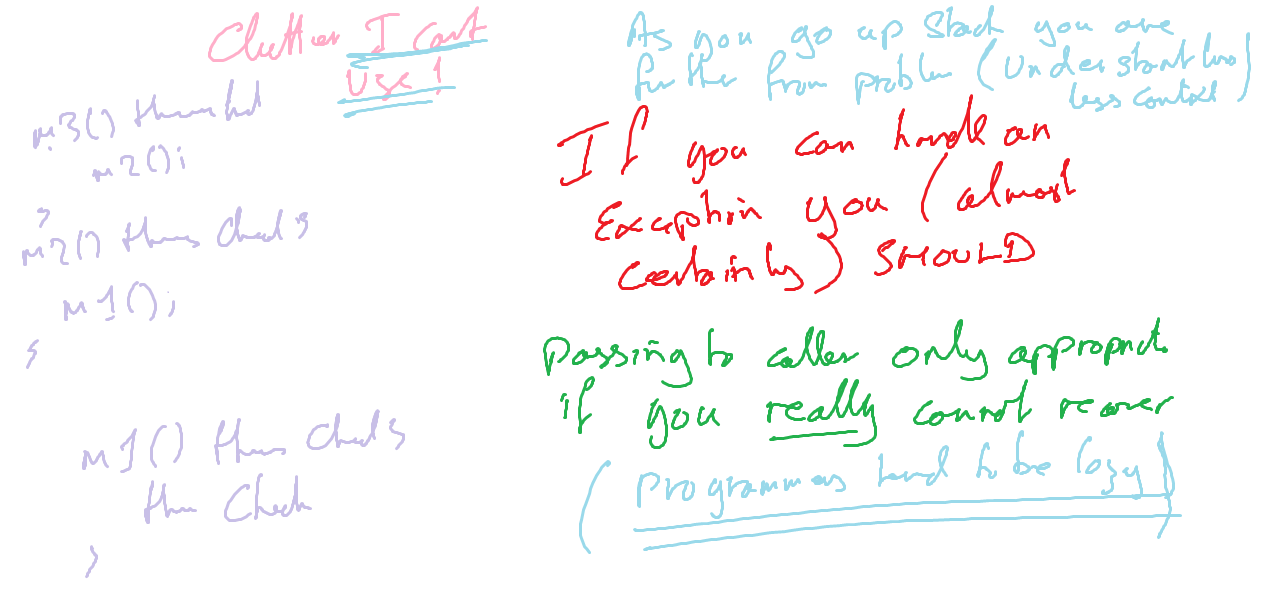 Clutter I cant
use!
m3() throws
m2();
}
m2() throws Check {
m1();
}
m1() throws Check {
throw Check
}
As you go up stack you are
further from problem (Understand less)
less context
If you can handle an
Exception you (almost
certainly) SHOULD
Passing to caller only appropriate
if you really cannot recover
(programmers tend to be lazy)